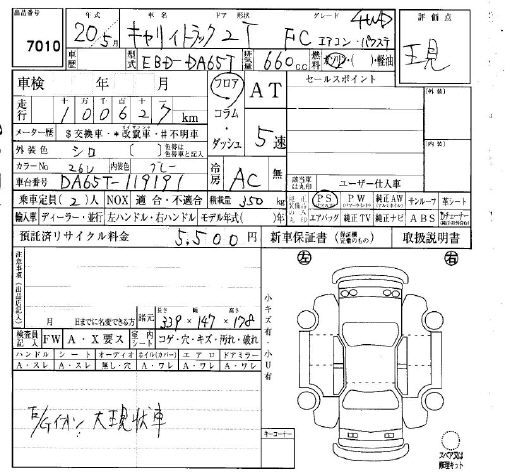 出品番号 7010
年式 20/5月 車名 キャリイトラック ドア 2 形状 T グレード FC 4WD エアコン・パワステ
評価点 現
車歴 型式 EBD-DA65T 排気量 660cc 燃料 ガソリン・( )・軽油
車検 年 月
走行 100627 km
メーター歴 $交換車・*改竄車・#不明車
外装色 シロ 色替は色替車と記入
カラーNo 26U 内装色 グレー
車台番号 DA65T-119191
フロア コラム・ダッシュ AT 5速
冷房 AC 無
セールスポイント
外装
内装
ユーザー仕入車
乗車定員(2)人 NOX 適合・不適合 積載量 350kg
PS PW 純正AW サンルーフ 革シート
輸入車 ディーラー・並行 左ハンドル・右ハンドル モデル年式( )年 エアバッグ 純正TV 純正ナビ ABS
預託済リサイクル料金 5,500円 新車保証書 取扱説明書
注意事項(出品店記入)
月 日までに名変できる方
諸元 長さ 339 × 幅 147 × 高さ 178
検査員記入 FW A・X要ス 室内 シート コゲ・穴・キズ・汚れ・破れ
ハンドル シート オーディオ ホイル(カバー) エアロ ドアミラー
A・スレ A・スレ 無し・穴 A・ワレ A・ワレ A・ワレ
大現状車
小キズ有・小U有
キーコーナー
左 右
スペア又は修理キット